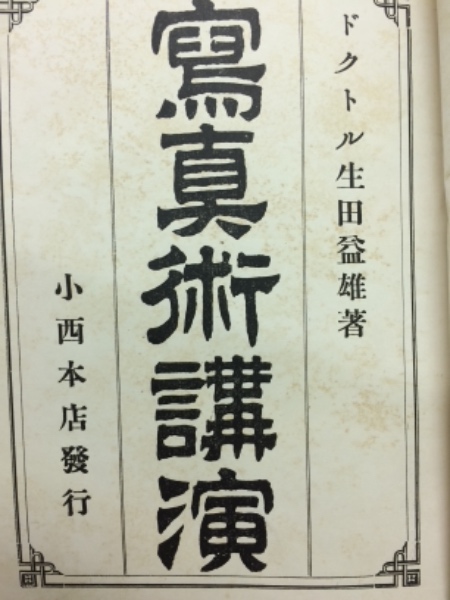 ドクトル生田益雄著
寫真術講演
小西本店發行